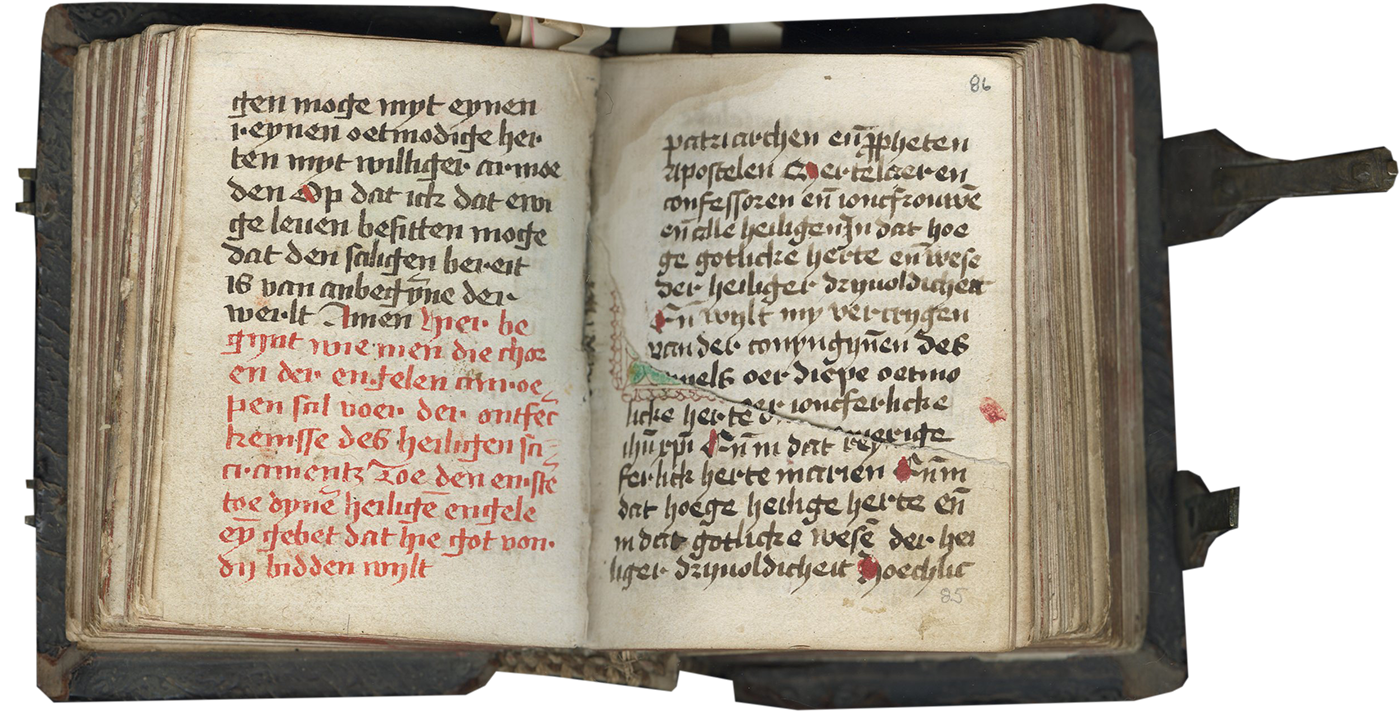 gen moge myt eynen
reynen oetmodige her
ten myt williger armoe
den Op dat ick dat ewi
ge leuen besitten moge
dat den saligen bereit
is van anbegȳne der
werlt Amen Hyer be
gynt wie men die chor
en der engelen anroe
pen sal voer der ontfec
kenisse des heiligen sa
cramentz Toe den erstē
toe dynē heiligē engele
eȳ gebet dat hie got vor
dij bidden wylt
86
patriarchen en̄ ꝓpheten
Apostelen Mertelaeren
confessoren en̄ ioncfrouwē
en̄ alle heiligen In dat hoe
ge gotlicke herte en̄ wese
der heiliger dryuoldicheit
En̄ wylt my verwygen
van der conyngyn̄en des
mels oer diepe oetmo
licke herte oer ioncferlicke
ihū xpī En̄ in dat
ferlick herte marien En̄ in
dat hoege heilige herte en̄
in dat gotlicke wesē der hei
liger dryuoldicheit Hoechlic
85